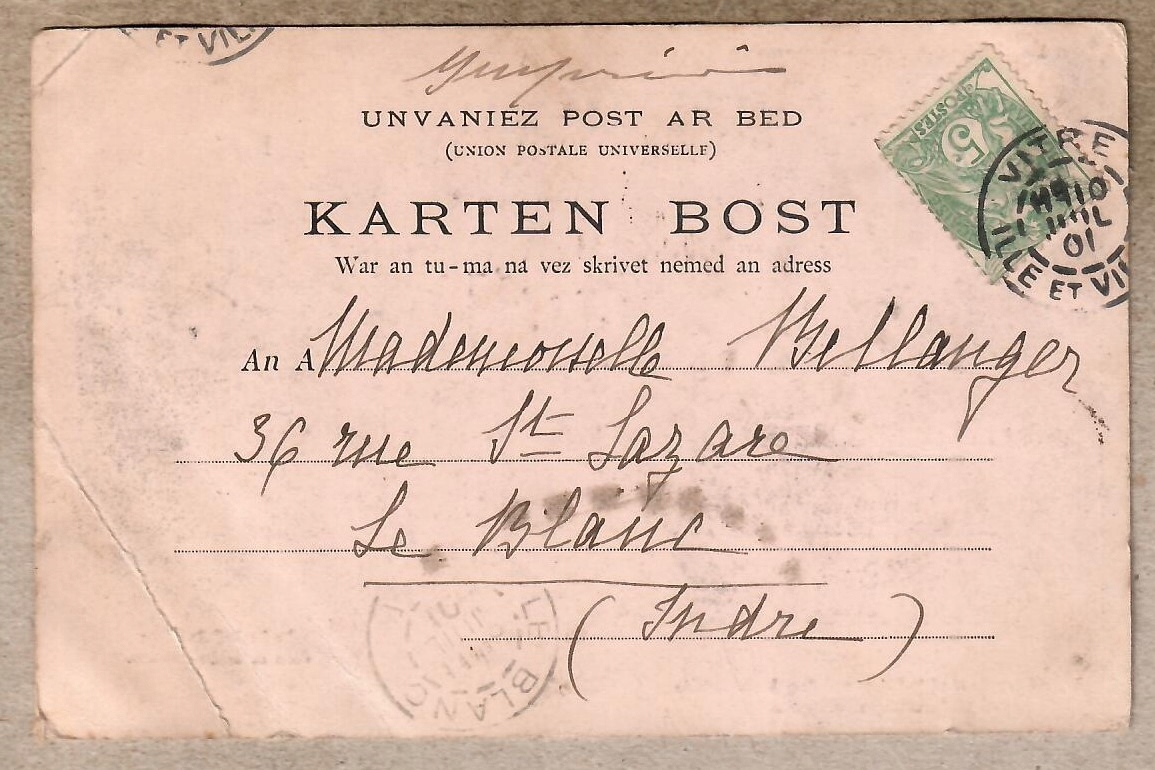 ET VIL
Imprimé
UNVANIEZ POST AR BED
(UNION POSTALE UNIVERSELLE)
KARTEN BOST
War an tu-ma na vez skrivet nemed an adress
POSTES
5
VITRE
10
JUIL
01
ILLE ET VIL
An A Mademoiselle Bellanger
36 rue St Lazare
Le Blanc
(Indre)
LE BLANC